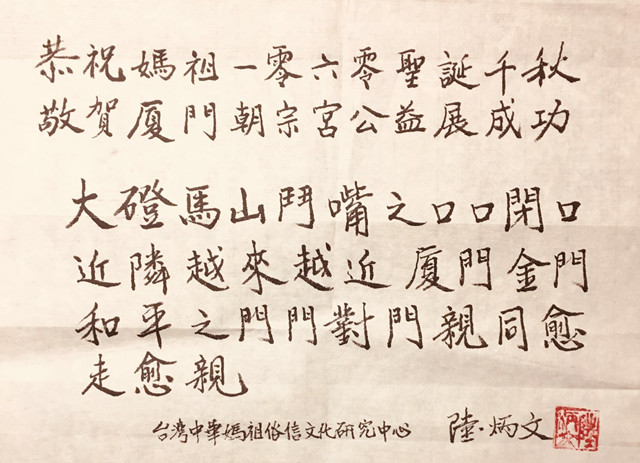 恭祝媽祖一零六零聖誕千秋
敬賀廈門朝宗宮公益展成功
大磴馬山鬥嘴之口口閉口
近隣越來越近廈門金門
和平之門門對門親同愈
走愈親
台湾中華媽祖俗信文化研究中心 陸·炳文